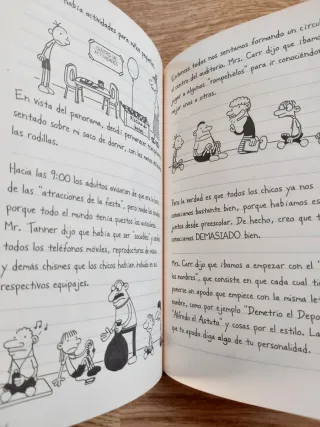 había actividades para niños
En vista del panorama, decidí permanecer
sentado sobre mi saco de dormir, con las
las rodillas.
Hacia las 9:00 los adultos
de las "atracciones de la fiesta", pero nadie
porque todo el mundo tenía puestos los
Mr. Tanner dijo que había que ser "sociables" y
todos los teléfonos móviles, reproductores de
y demás chismes que los chicos habían
respectivos equipajes.
Entonces todos nos sentamos formando un círculo
centro del auditorio. Mrs. Carr dijo que íbamos
jugar a algunos "rompehielos" para ir
mejor unos a otros.
Pero la verdad es que todos los chicos ya nos
conocíamos bastante bien, porque habíamos
juntos desde preescolar. De hecho, creo que
conocíamos DEMASIADO bien.
Mrs. Carr dijo que íbamos a empezar con el
los nombres", que consiste en que cada cual
ponerse un apodo que empiece con la misma
nombre, como por ejemplo "Demetrio el
"Alfredo el Astuto" y cosas por el estilo. La
que tu apodo diga algo de tu personalidad.